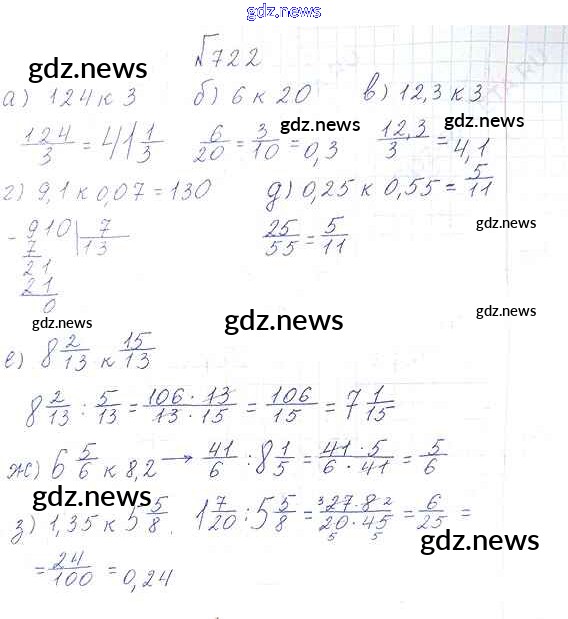 gdz.news
√722
gdz.news
а) 124 к 3 б) 6 к 20 в) 12,3 к 3
124/3 = 41 1/3 6/20 = 3/10 = 0,3 12,3/3 = 4,1
gdz.news gdz.news
г) 9,1 к 0,07 = 130 д) 0,25 к 0,55 = 5/11
- 910 | 7 25/55 = 5/11
7 13
gdz.news
21
21
0
gdz.news gdz.news gdz.news
е) 8 2/13 к 15/13
8 2/13 : 5/13 = 106 · 13/13 · 15 = 106/15 = 7 1/15
ж) 6 5/6 к 8,2 → 41/6 : 8 1/5 = 41 · 5/6 · 41 = 5/6
gdz.news gdz.news
з) 1,35 к 5 5/8. 1 7/20 : 5 5/8 = 3 27 · 8 2/20 · 45 5 5 = 6/25 =
gdz.news
= 24/100 = 0,24